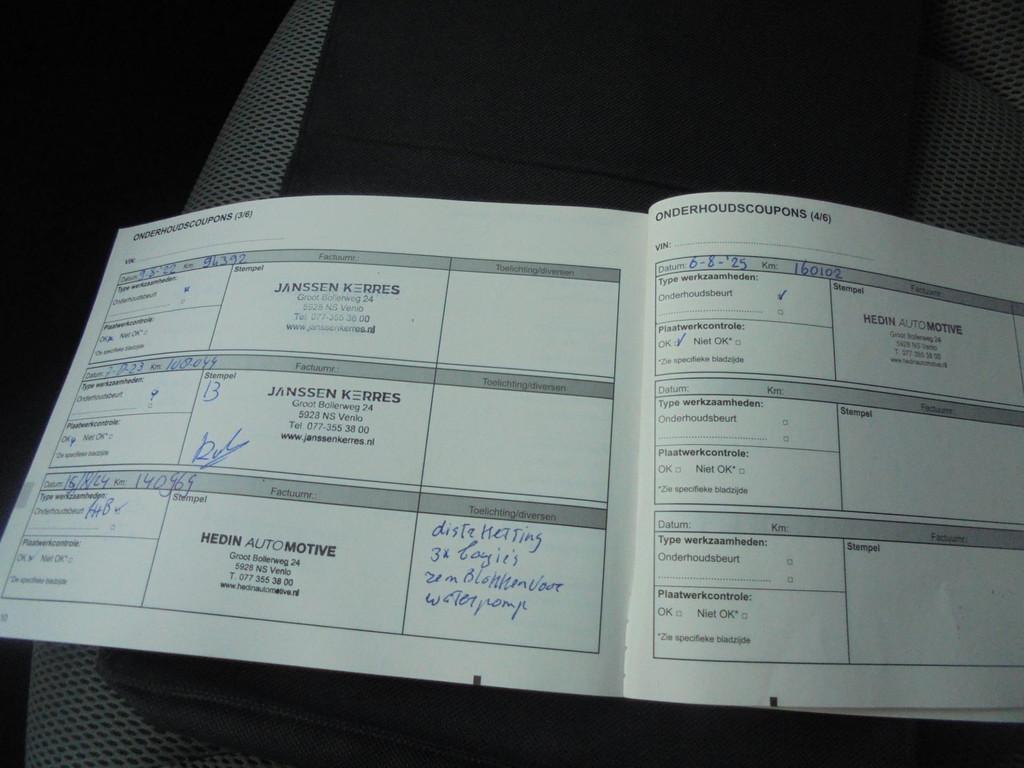 ONDERHOUDSCOUPONS (3/6)
VIN:
Datum: 9-8-'22 Km: 94392
Factuurnr.:
Toelichting/diversen
Type werkzaamheden:
Stempel
Onderhoudsbeurt
Plaatwerkcontrole:
OK Niet OK*
*De specifieke bladzijde
JANSSEN KERRES
Groot Bollerweg 24
5928 NS Venlo
Tel. 077-355 38 00
www.janssenkerres.nl
Datum: Km:
Factuurnr.:
Toelichting/diversen
Type werkzaamheden:
Stempel
Onderhoudsbeurt
B
Plaatwerkcontrole:
OK Niet OK*
*De specifieke bladzijde
JANSSEN KERRES
Groot Bollerweg 24
5928 NS Venlo
Tel. 077-355 38 00
www.janssenkerres.nl
Datum: 15/8/24 Km: 140969
Factuurnr.:
Toelichting/diversen
Type werkzaamheden:
Stempel
Onderhoudsbeurt A+B
Plaatwerkcontrole:
OK Niet OK*
*De specifieke bladzijde
HEDIN AUTOMOTIVE
Groot Bollerweg 24
5928 NS Venlo
T. 077 355 38 00
www.hedinautomotive.nl
distr Ketting
3x bougie's
rem Blokken voor
waterpomp
ONDERHOUDSCOUPONS (4/6)
VIN:
Datum: 6-8-'25 Km: 160102
Factuurnr.:
Type werkzaamheden:
Stempel
Onderhoudsbeurt
Plaatwerkcontrole:
OK Niet OK*
*Zie specifieke bladzijde
HEDIN AUTOMOTIVE
Groot Bollerweg 24
5928 NS Venlo
T. 077 355 38 00
www.hedinautomotive.nl
Datum: Km:
Factuurnr.:
Type werkzaamheden:
Stempel
Onderhoudsbeurt
Plaatwerkcontrole:
OK Niet OK*
*Zie specifieke bladzijde
Datum: Km:
Factuurnr.:
Type werkzaamheden:
Stempel
Onderhoudsbeurt
Plaatwerkcontrole:
OK Niet OK*
*Zie specifieke bladzijde